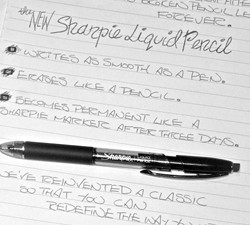 BROKEN PENCIL LE
FOREVER.
the NEW Sharpie Liquid Pencil
WRITES AS SMOOTH AS A PEN.
ERASES LIKE A PENCIL.
BECOMES PERMANENT LIKE A
SHARPIE MARKER AFTER THREE DAYS.
Sharpie
WE'VE REINVENTED A CLASSIC
SO THAT YOU CAN
REDEFINE THE WAY